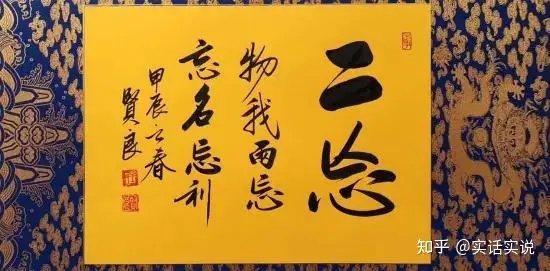 二忘
物我两忘
忘名忘利
甲辰之春
賢良
知乎 @实话实说